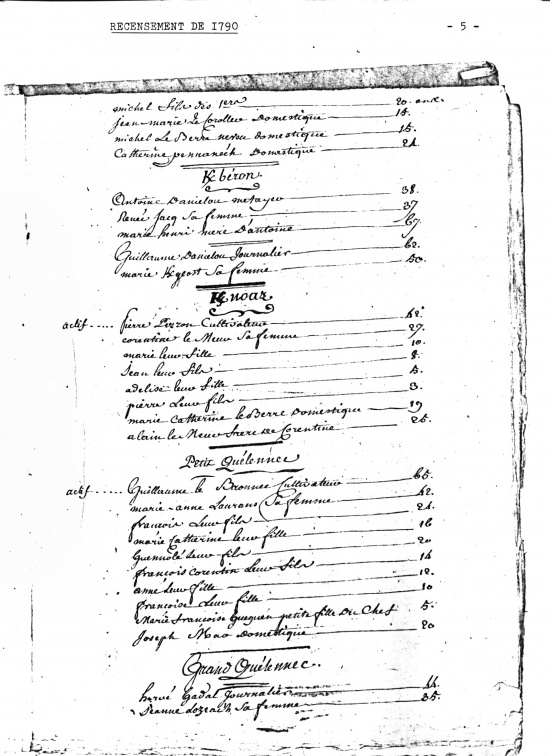 RECENSEMENT DE 1790 - 5 -
michel fils des 1ers 20 ans.
jean-marie Le Corollec Domestique 15.
michel Le Berre neveu Domestique 15.
Catherine pennanéch Domestique 24
K/béron.
Antoine Danielou metayer 38.
Renée Jacq sa femme 37
marie henri mere D'antoine 67.
Guillaume Danielou Journalier 62.
marie K/geost sa femme 50.
K/noaz
actif ..... pierre Lizron Cultivateur 42.
corentine le Meur sa femme 27.
marie leur fille 10.
Jean leur fils 8.
adelise leur fille 5.
pierre Leur fils 3.
marie Catherine le Berre Domestique 19
alain le Meur frere De Corentine 25.
Petit Quélennec
actif ..... Guillaume le Bronnec Cultivateur 65.
marie-anne Laurans sa femme 42.
francois Leur fils 24.
marie Catherine leur fille 16
Guennolé Leur fils 20
francois corentin Leur fils 14
anne Leur fille 12.
francoise Leur fille 10
Marie francoise Gueguen petite fille Du Chef 5.
Joseph Mao Domestique 20
Grand Quélennec.
hervé Gadal Journalier 44.
Jeanne Lozeach sa femme 35.